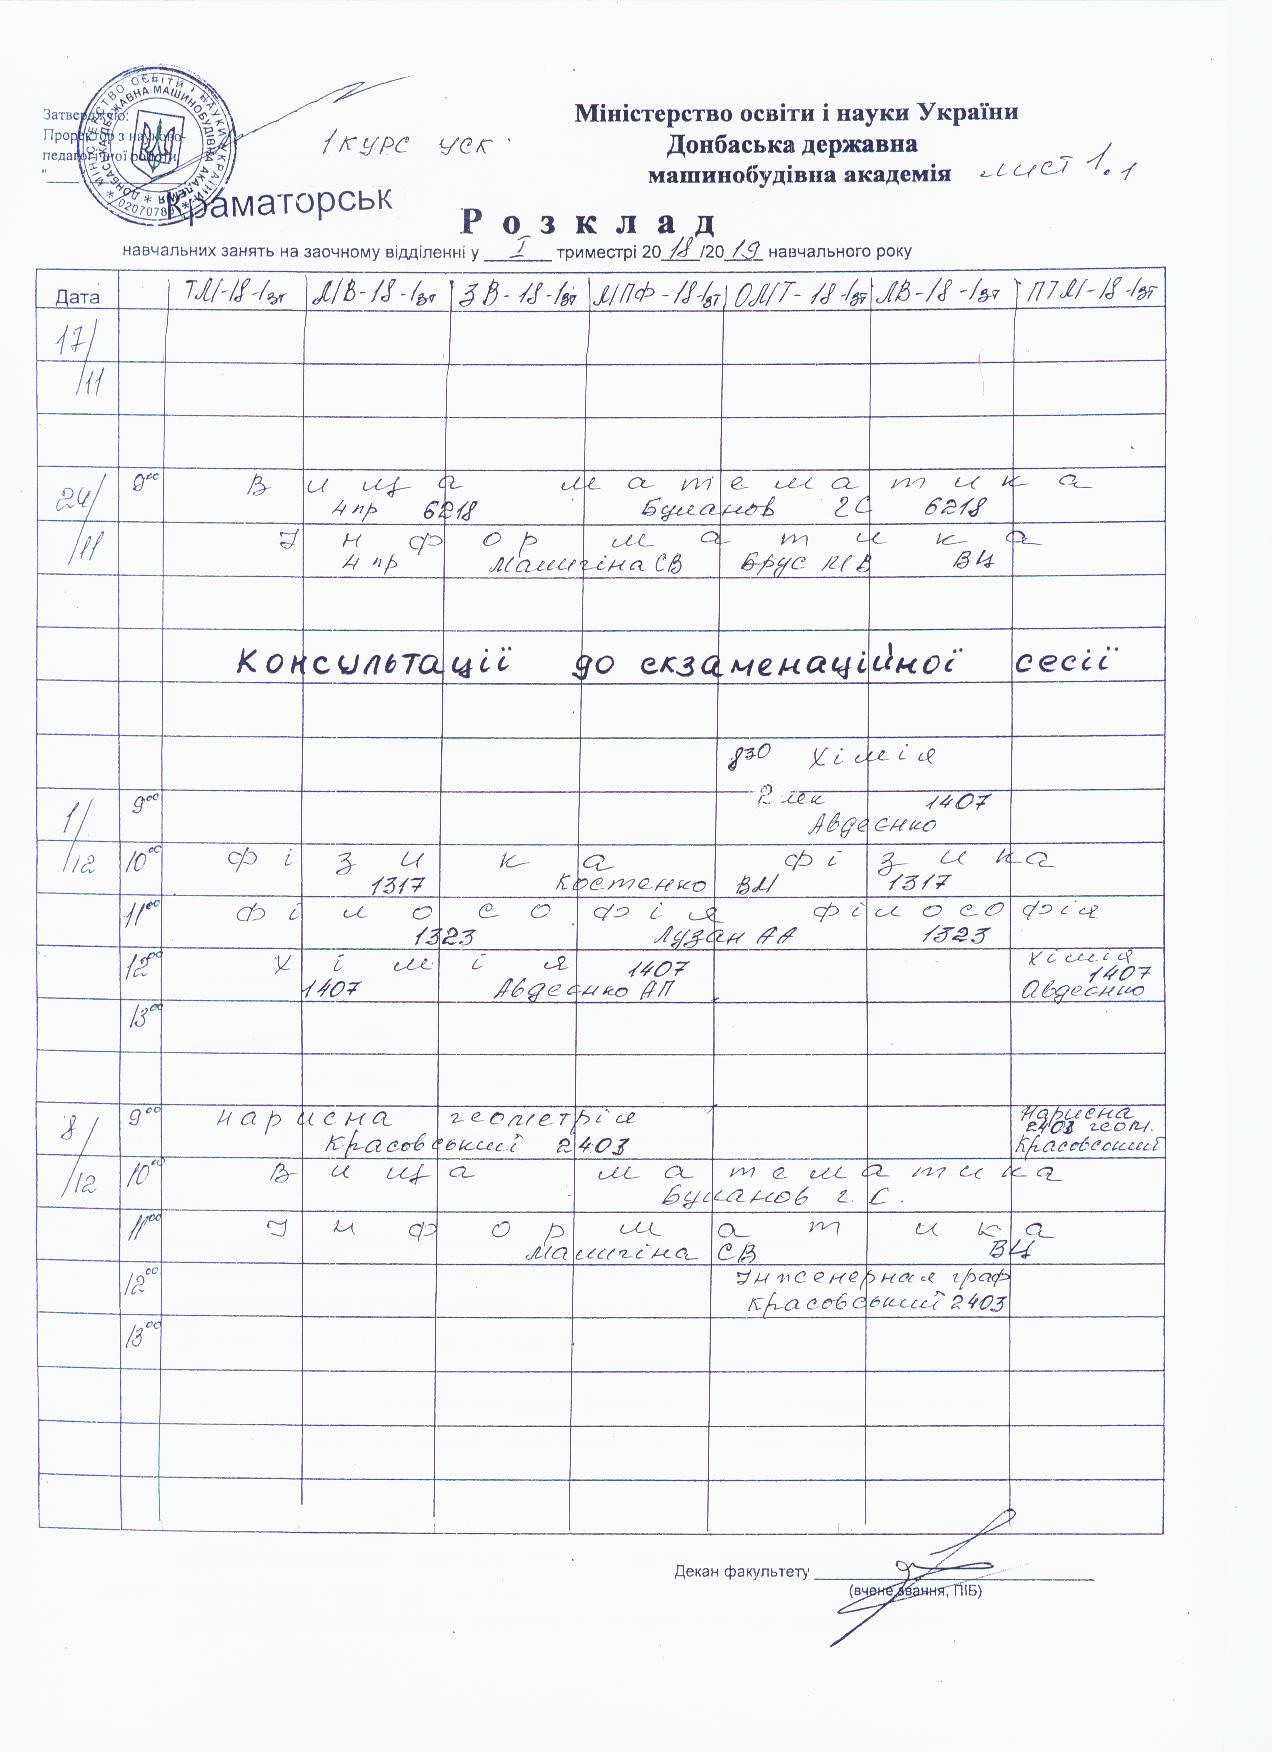 Затверджую:
Проректор з науково-
педагогічної роботи
МІНІСТЕРСТВО ОСВІТИ І НАУКИ УКРАЇНИ
ДОНБАСЬКА ДЕРЖАВНА МАШИНОБУДІВНА АКАДЕМІЯ
Краматорськ
1 курс уск
Міністерство освіти і науки України
Донбаська державна
машинобудівна академія
лист 1.1
Розклад
навчальних занять на заочному відділенні у I триместрі 2018/2019 навчального року
Дата ТМ-18-1зт МВ-18-1зт ЗВ-18-1зт МПФ-18-1зт ОМТ-18-1зт ЛВ-18-1зт ПТМ-18-1зт
17/11
24/11 900 Вища математика
4 пр 6218 Буланов ГС 6218
Інформатика
4 пр Малигіна СВ Брус МВ ВЦ
Консультації до екзаменаційної сесії
830 Хімія
1/12 900 2 лек 1407
Авдеєнко
1000 Фізика Фізика
1317 Костенко ВМ 1317
1100 Філософія Філософія
1323 Лузан АА 1323
1200 Хімія 1407 Хімія
1407 Авдеєнко АП 1407
Авдеєнко
1300
8/12 900 Нарисна геометрія Нарисна
Красовський 2403 2403 геом.
Красовський
1000 Вища математика
Буланов г. С.
1100 Інформатика
Малигіна СВ ВЦ
1200 Інженерная граф
Красовський 2403
1300
Декан факультету
(вчене звання, ПІБ)